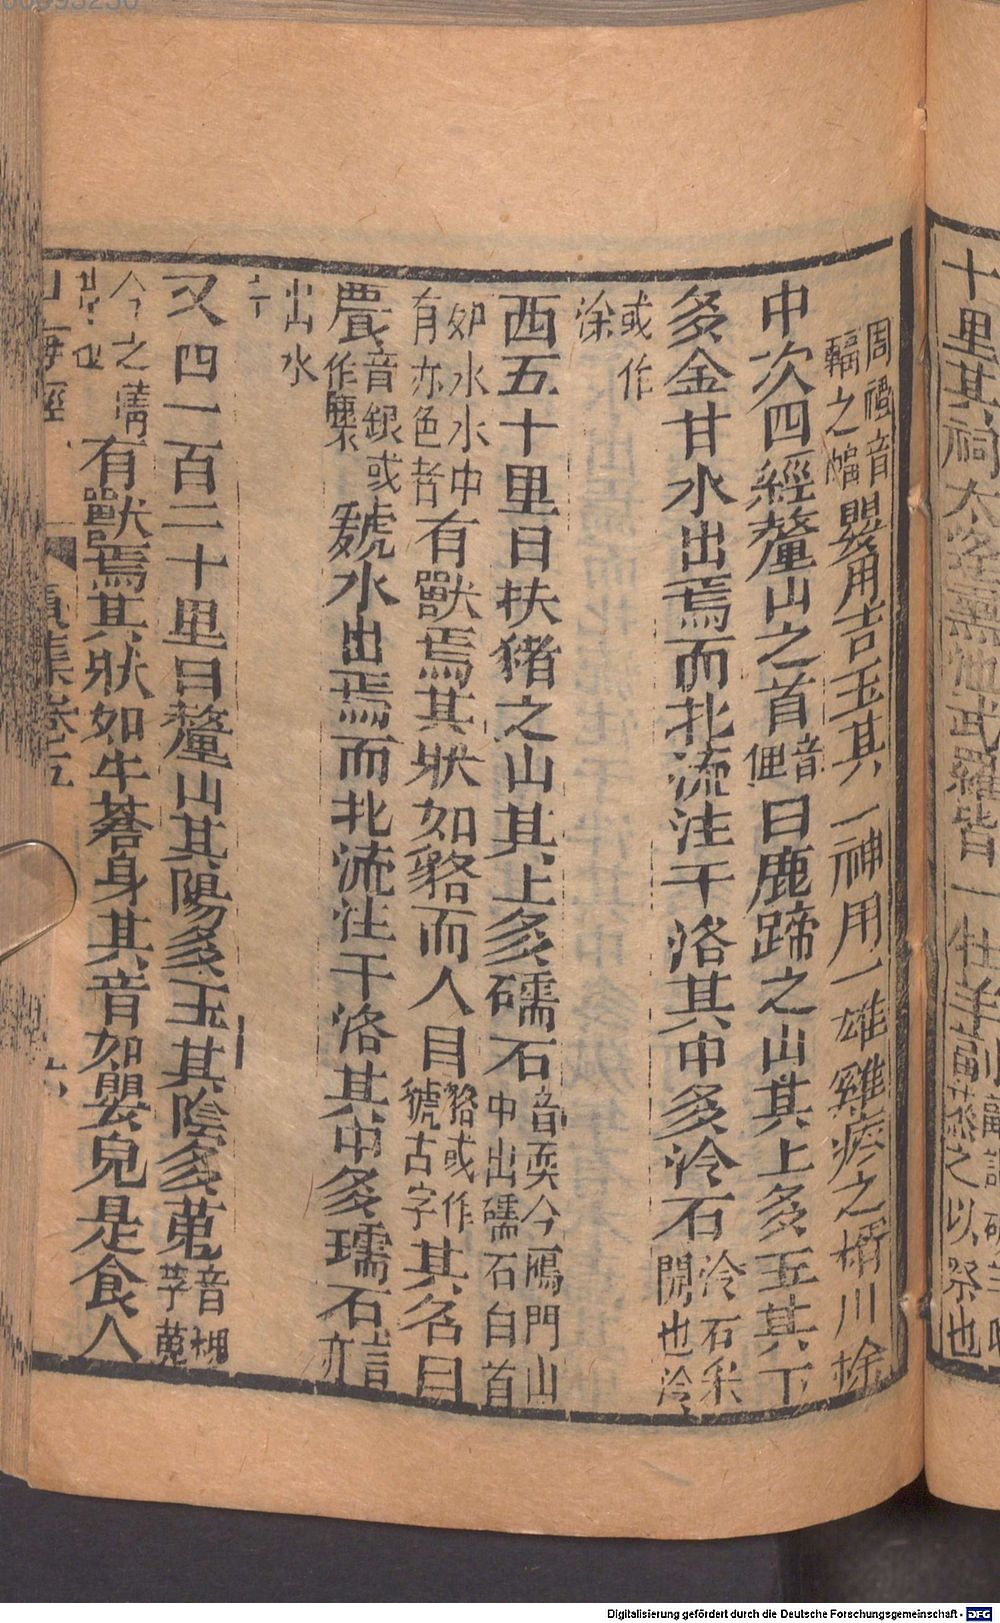 十里其祠太室熏池武羅皆一牡羊副
周禮音䐧之䐧嬰用吉玉其一神用一雄雞瘞之糈用稌
中次四經釐山之首音俚曰鹿蹄之山其上多玉其下
多金甘水出焉而北流注于洛其中多泠石泠石未聞也泠
或作涂
西五十里曰扶猪之山其上多礝石音耎今鴈門山中出礝石白首
如水水中有赤色者有獸焉其狀如貉而人目貉或作𧳅古字其名曰
䴦音銀或作䴦虢水出焉而北流注于洛其中多瓀石言亦
出水
中
又四一百二十里曰釐山其陽多玉其陰多蒐音搜茅蒐
今之蒨草也有獸焉其狀如牛蒼身其音如嬰兒是食人
山海經 卷五
Digitalisierung gefördert durch die Deutsche Forschungsgemeinschaft - DFG